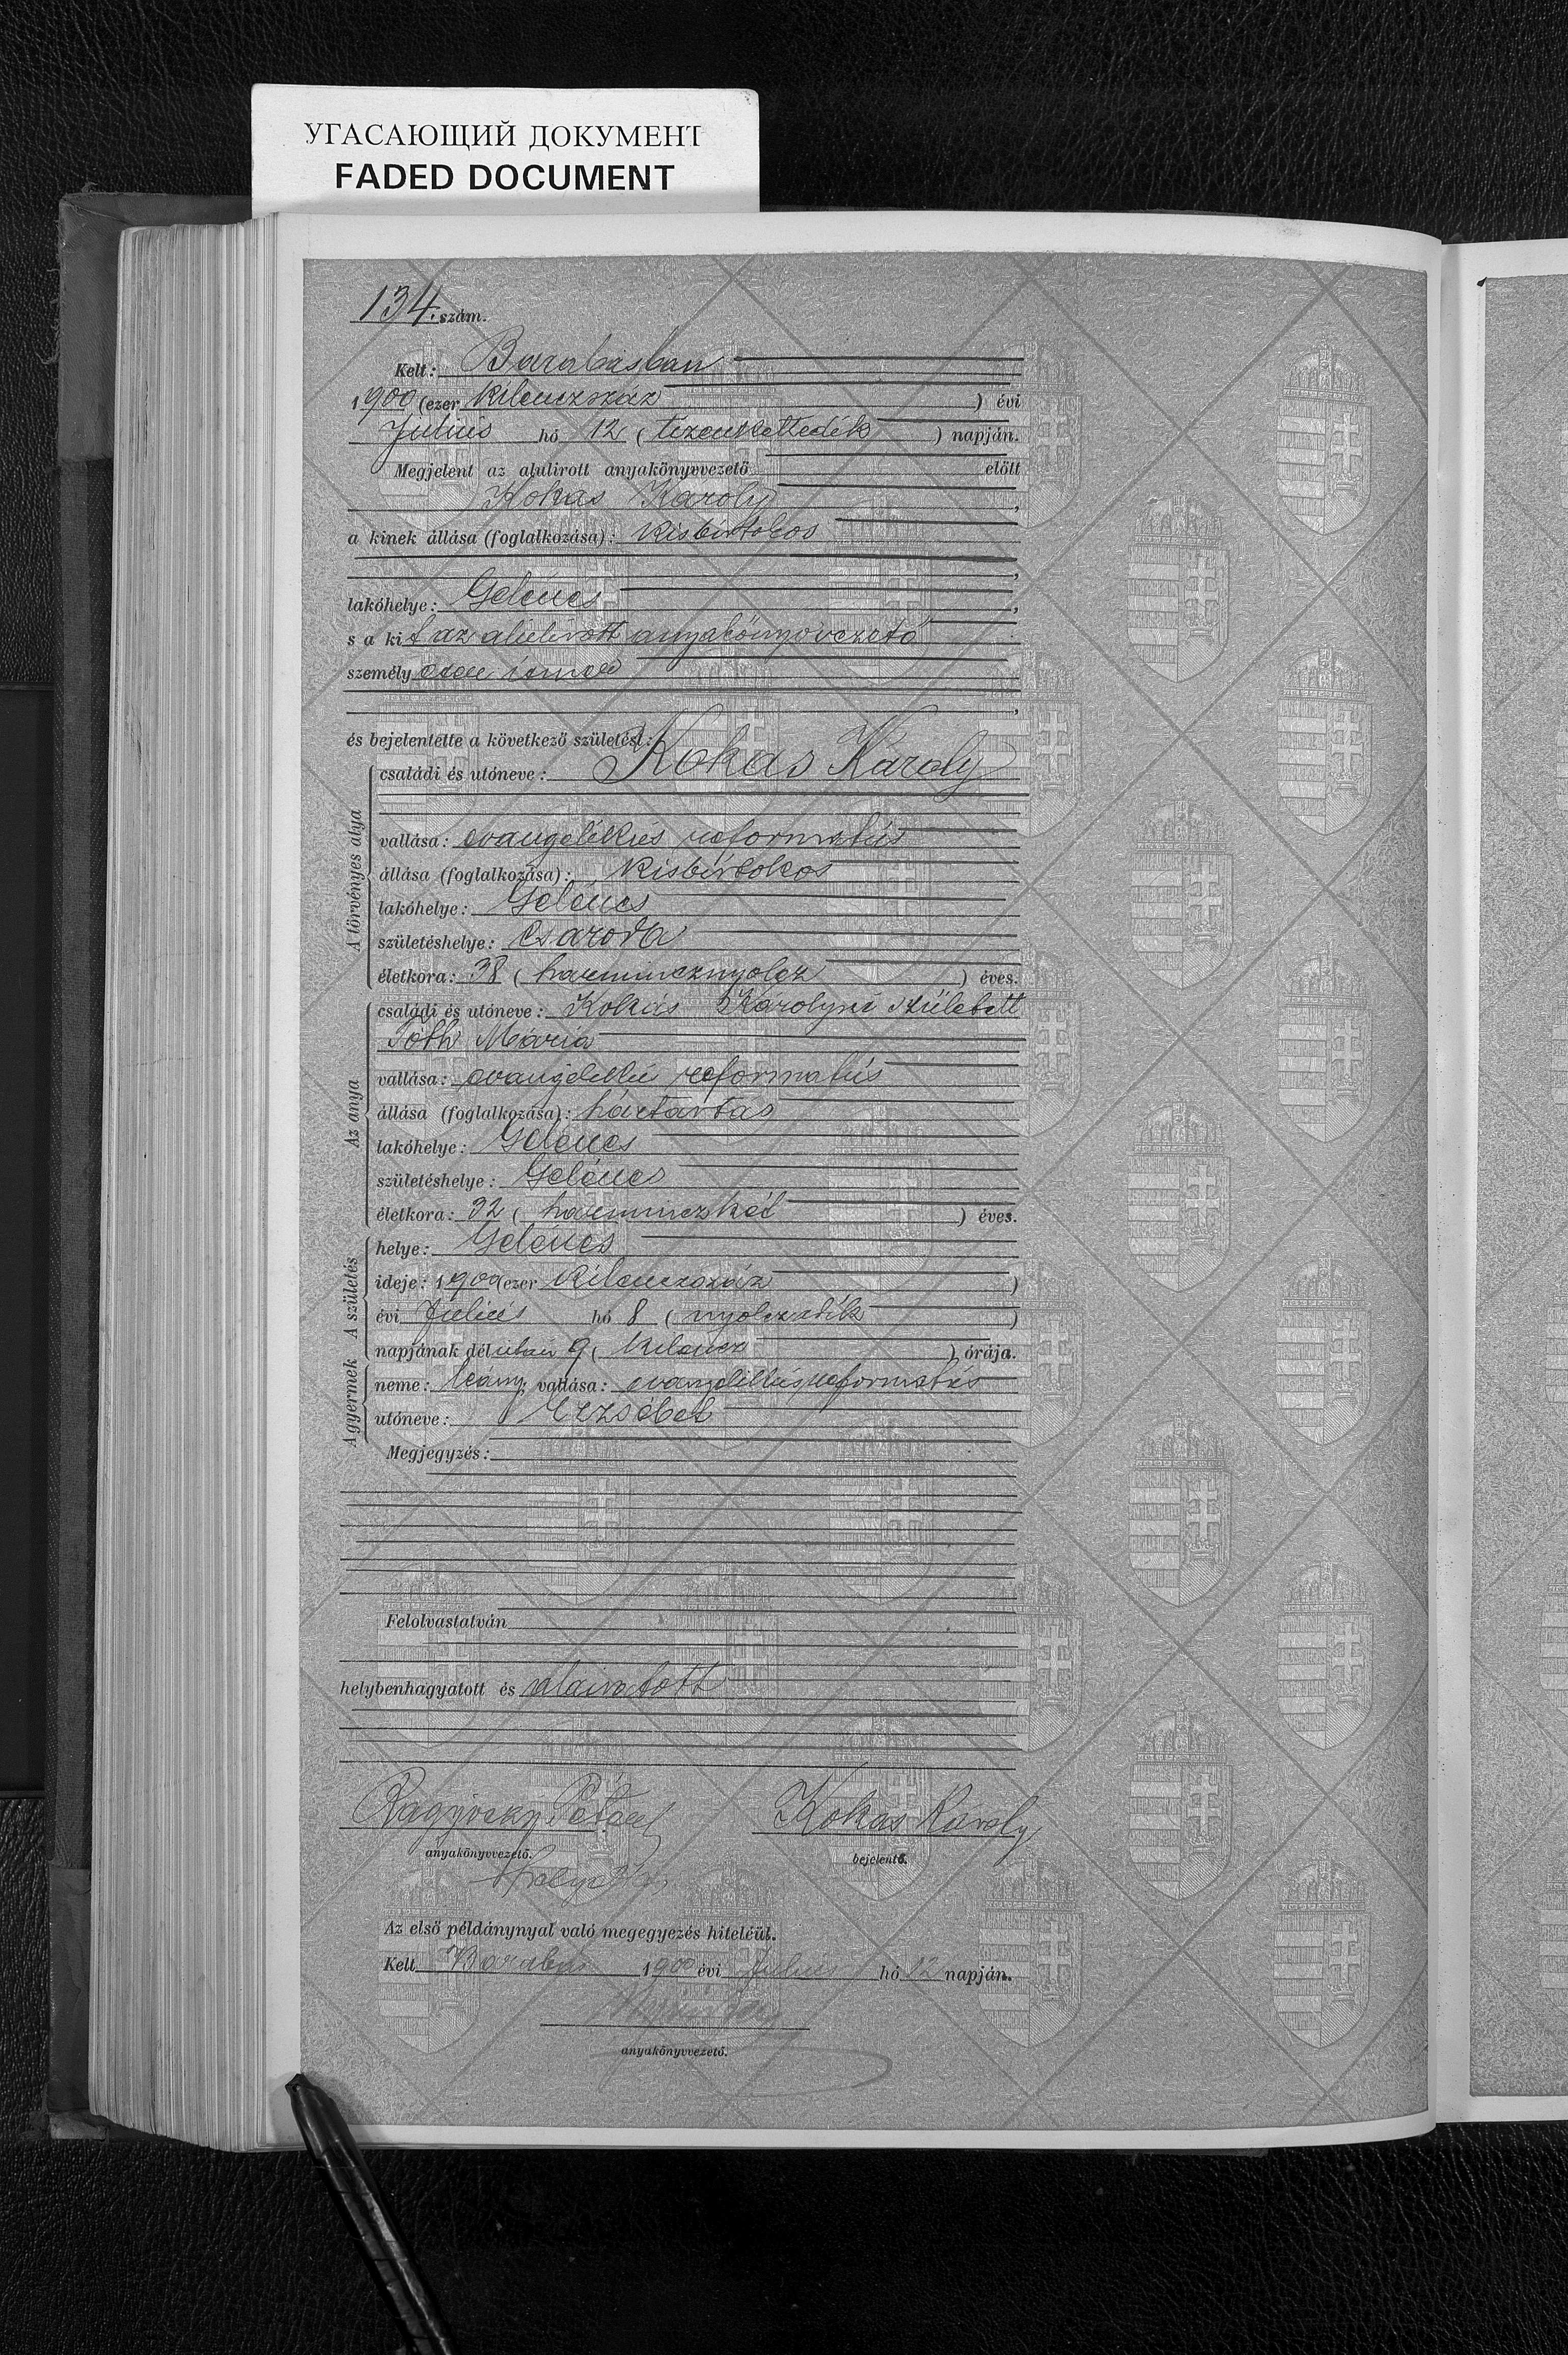 УГАСАЮЩИЙ ДОКУМЕНТ
FADED DOCUMENT
134. szám.
Kelt: Barabásban
1900 (ezer kilenczszáz ) évi
Julius hó 12 ( tizenkettedik ) napján.
Megjelent az alulirott anyakönyvvezető előtt
Kokas Károly,
a kinek állása (foglalkozása): kisbirtokos
lakóhelye: Gelénes,
s a kit az alulirott anyakönyvvezető
személyesen ismer,
és bejelentette a következő születést:
A törvényes atya
családi és utóneve: Kokas Károly
vallása: evangélikus református
állása (foglalkozása): Kisbirtokos
lakóhelye: Gelénes
születéshelye: Csaroda
életkora: 38 ( harmincznyolcz ) éves.
Az anya
családi és utóneve: Kokás Károlyné született
Tóth Mária
vallása: evangelikus református
állása (foglalkozása): háztartás
lakóhelye: Gelénes
születéshelye: Gelénes
életkora: 32 ( harminczkét ) éves.
A születés
helye: Gelénes
ideje: 1900 (ezer kilenczszáz )
évi Julius hó 8 ( nyolczadik )
napjának délután 9 ( kilencz ) órája.
A gyermek
neme: leány vallása: evangelikus református
utóneve: Erzsébet
Megjegyzés:
Felolvastatván
helybenhagyatott és aláiratott
Kokas Károly
anyakönyvvezető.
bejelentő.
Az első példánynyal való megegyezés hiteléül.
Kelt Barabás 1900 évi Julius hó 12 napján.
anyakönyvvezető.